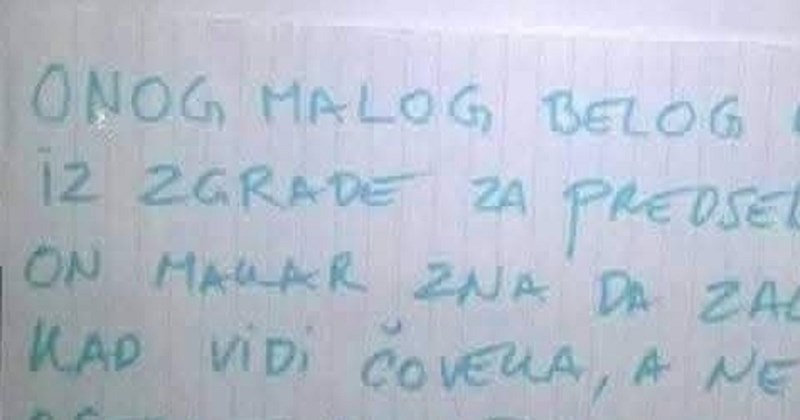 ONOG MALOG BELOG
IZ ZGRADE ZA PREDSED
ON MAKAR ZNA DA ZAL
KAD VIDI ČOVEKA, A NE